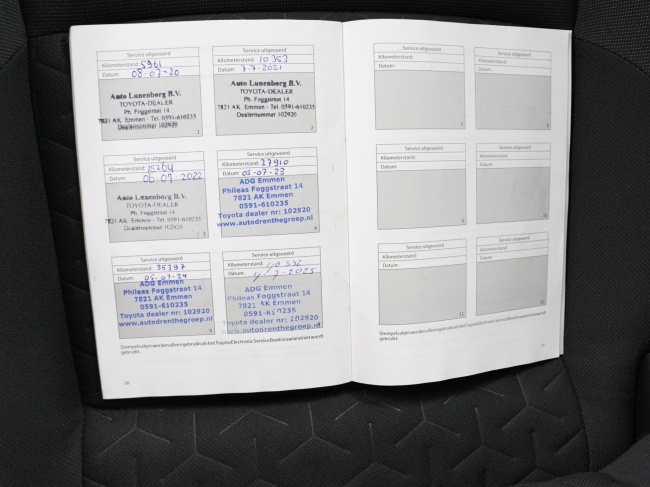 Service uitgevoerd
Kilometerstand: 5961
Datum: 08-07-20
Auto Lunenborg B.V.
TOYOTA-DEALER
Ph. Foggstraat 14
7821 AK Emmen - Tel. 0591-610235
Dealernummer 102920
1
Service uitgevoerd
Kilometerstand: 10353
Datum: 7-7-2021
Auto Lunenborg B.V.
TOYOTA-DEALER
Ph. Foggstraat 14
7821 AK Emmen - Tel. 0591-610235
Dealernummer 102920
2
Service uitgevoerd
Kilometerstand: 15264
Datum: 06-07-2022
Auto Lunenborg B.V.
TOYOTA-DEALER
Ph. Foggstraat 14
7821 AK Emmen - Tel. 0591-610235
Dealernummer 102920
3
Service uitgevoerd
Kilometerstand: 27910
Datum: 05-07-23
ADG Emmen
Phileas Foggstraat 14
7821 AK Emmen
0591-610235
Toyota dealer nr: 102920
www.autodrenthegroep.nl
4
Service uitgevoerd
Kilometerstand: 35397
Datum: 05-07-24
ADG Emmen
Phileas Foggstraat 14
7821 AK Emmen
0591-610235
Toyota dealer nr: 102920
www.autodrenthegroep.nl
5
Service uitgevoerd
Kilometerstand: 40332
Datum: 4/7-2025
ADG Emmen
Phileas Foggstraat 14
7821 AK Emmen
0591-610235
Toyota dealer nr: 102920
www.autodrenthegroep.nl
Service uitgevoerd
Kilometerstand:
Datum:
7
Service uitgevoerd
Kilometerstand:
Datum:
8
Service uitgevoerd
Kilometerstand:
Datum:
9
Service uitgevoerd
Kilometerstand:
Datum:
10
Service uitgevoerd
Kilometerstand:
Datum:
11
Service uitgevoerd
Kilometerstand:
Datum:
12